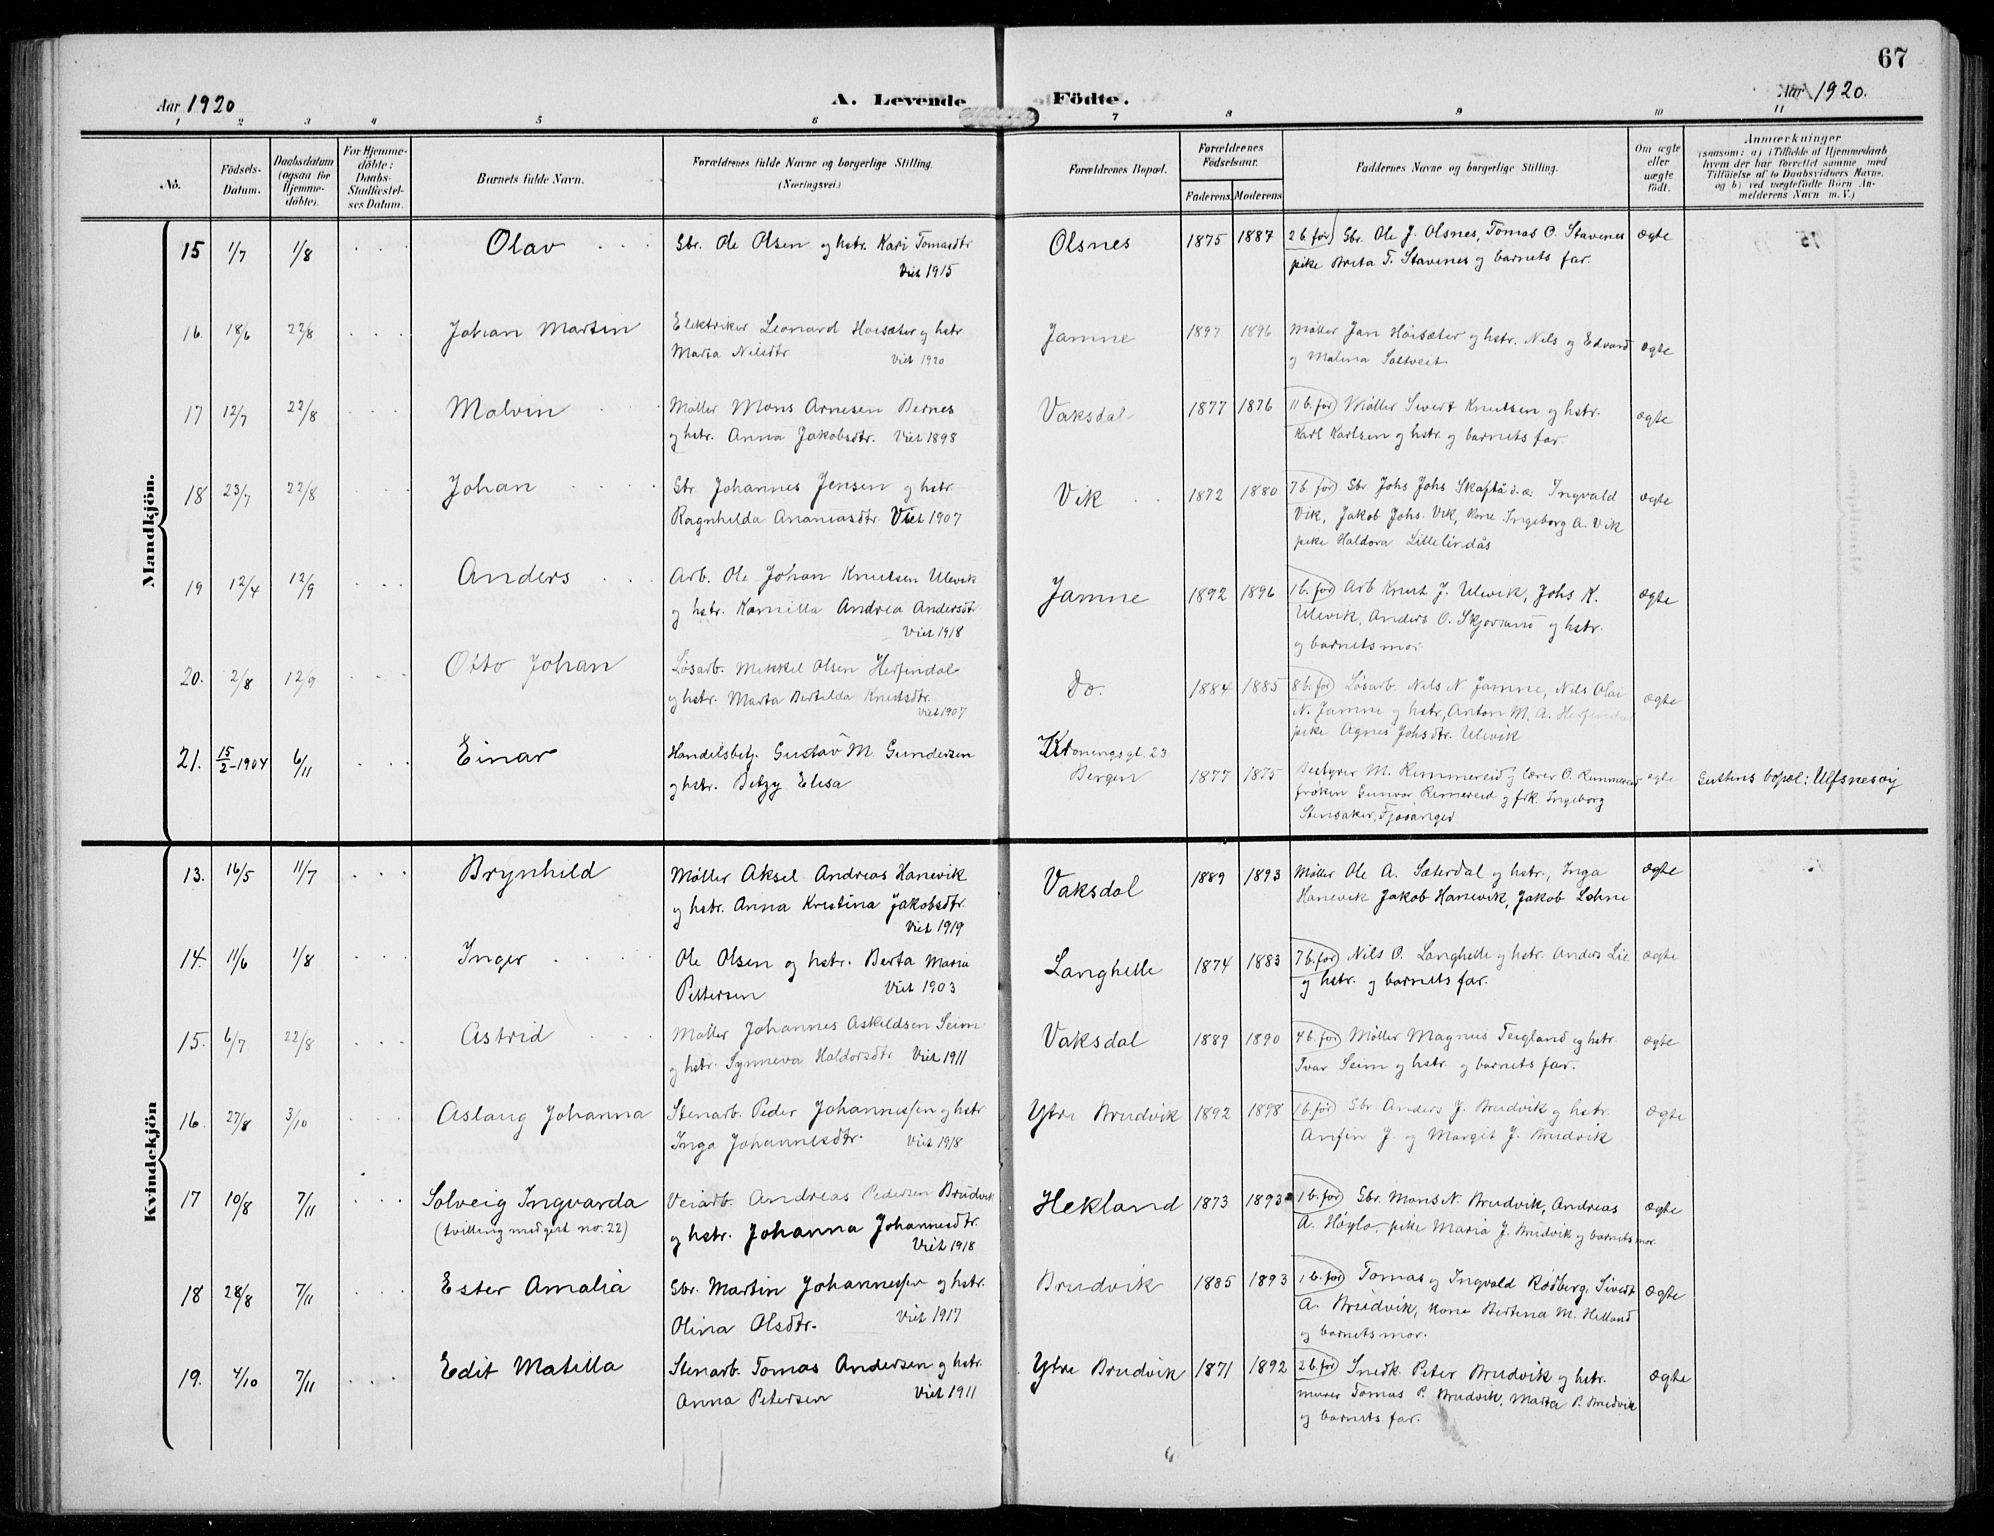 67
Aar 1920
A. Levende Födte.
Aar 1920.
1 2 3 4 5 6 7 8 9 10 11
No.
Födsels-Datum.
Daabsdatum (ogsaa for Hjemme-döbte).
For Hjemme-döbte: Daabs-Stadfæstel-ses Datum.
Barnets fulde Navn.
Forældrenes fulde Navne og borgerlige Stilling.
(Næringsvei.)
Forældrenes Bopæl.
Forældrenes Födselsaar.
Faderens. Moderens.
Faddernes Navne og borgerlige Stilling.
Om ægte eller uægte födt.
Anmærkninger
(saasom: a) i Tilfælde af Hjemmedaab
hvem der har forrettet samme, med
Tilföielse af to Daabsvidners Navne,
og b) ved uægtefödte Börn An-
melderens Navn m. V.)
Mandkjön.
15 1/7 1/8 Olav Gbr. Ole Olsen og hstr. Kari Tomasdtr Olsnes 1875 1887 2 b. før) Gbr. Ole J. Olsnes, Tomas O. Stavenes ægte
Viet 1915 pike Brita T. Stavenes og barnets far.
16. 18/6 22/8 Johan Martin Elektriker Leonard Høisæter og hstr. Jamne 1897 1896 Møller Jan Høisæter og hstr. Nils og Edvard ægte
Maria Nilsdtr. Viet 1920 og Malina Saltveit
17 12/7 22/8 Malvin Møller Mons Arnesen Bernes Vaksdal 1877 1876 11 b. før) Møller Sivert Knutsen og hstr. ægte
og hstr. Anna Jakobsdtr. Viet 1898 Karl Karlsen og hstr. og barnets far.
18 23/7 22/8 Johan Gbr. Johannes Jensen og hstr Vik 1872 1880 7 b. før) Gbr. Johs Johs Skaftå d.æ. Ingvald ægte
Ragnhilda Ananiasdtr. Viet 1907 Vik, Jakob Johs. Vik, kone Ingeborg A. Vik
pike Haldora Lillelindås
19 12/4 12/9 Anders Arb. Ole Johan Knutsen Ulevik Jamne 1892 1896 1 b. før) Arb Knut J. Ulevik, Johs K. ægte
og hstr. Kamilla Andrea Andersdtr Ulevik, Anders O. Skjovland og hstr.
Viet 1918 og barnets mor
20. 2/8 12/9 Otto Johan Løsarb. Mikkel Olsen Herfindal Do. 1884 1885 8 b. før) Løsarb. Nils N. Jamne, Nils Olai ægte
og hstr. Marta Bertilda Knutsdtr. N. Jamne og hstr, Anton M. A. Herfindal
Viet 1907 pike Agnes Johsdtr. Ulevik
21. 15/2-1904 6/11 Einar Handelsbetj. Gustav M. Gundersen Kroningsgt. 23
og hstr. Betzy Elisa Bergen 1877 1875 Bestyrer M. Remmereid og lærer O. Remmereid ægte Guttens bopæl: Ulfsnesøy
frøken Gunvor Remereid og frk. Ingeborg
Stensaker, Fjøsanger
Kvindekjön
13. 16/5 11/7 Brynhild Møller Aksel Andreas Hanevik Vaksdal 1889 1893 Møller Ole A. Sæterdal og hstr., Inga ægte
og hstr. Anna Kristina Jakobsdtr. Hanevik Jakob Hanevik, Jakob Lohne
Viet 1919
14. 11/6 1/8 Inger Ole Olsen og hstr. Berta Maria Langhelle 1874 1883 7 b. før) Nils O. Langhelle og hstr. Anders Lie ægte
Pettersen Viet 1903 og hstr. og barnets far.
15. 6/7 22/8 Astrid Møller Johannes Askildsen Seim Vaksdal 1889 1890 4 b. før) Møller Magnus Teigland og hstr. ægte
og hstr. Synneva Haldorsdtr Viet 1911 Ivar Seim og hstr. og barnets far.
16. 27/8 3/10 Aslaug Johanna Stenarb. Peder Johannessen og hstr Ytre Brudvik 1892 1898 1 b. før) Gbr. Anders J. Brudvik og hstr. ægte
Inga Johannesdtr. Viet 1918 Anfin J. og Margit J. Brudvik
17 10/8 7/11 Solveig Ingvarda Veiarb. Andreas Pedersen Brudvik Hekland 1873 1893 1 b. før) Gbr. Mons N. Brudvik, Andreas ægte
(tvilling med gut no. 22) og hstr. Johanna Johannesdtr. A. Høyla, pike Maria J. Brudvik og barnets mor.
Viet 1918
18 28/8 7/11 Ester Amalia Gbr. Martin Johannessen og hstr. Brudvik 1885 1893 1 b. før) Tomas og Ingvald Rødberg, Sivert ægte
Olina Olsdtr. Viet 1917 A. Brudvik, kone Bertina M. Helland
og barnets mor.
19. 4/10 7/11 Edit Matilla Stenarb. Tomas Andersen og hstr. Ytre Brudvik 1871 1892 2 b. før) Snedk. Peter Brudvik og hstr. ægte
Anna Petersen Viet 1911 murer Tomas P. Brudvik, Marta P. Brudvik
og barnets far.